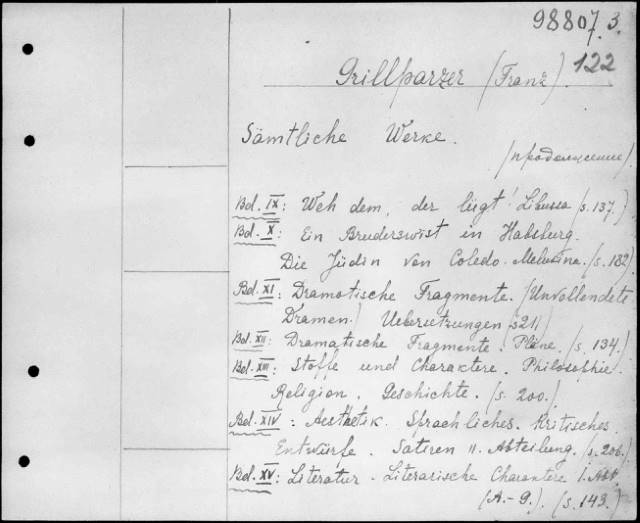 98807.3.
122
Grillparzer (Franz).
Sämtliche Werke.
(продолжение)
Bd. IX: Weh dem, der lügt! Libussa (s. 137.)
Bd. X: Ein Bruderswist in Habsburg.
Die Jüdin von Coledo. Melusina. (s. 182)
Bd. XI: Dramatische Fragmente. (Unvollendete
Dramen.) Uebersetzungen s211
Bd. XII: Dramatische Fragmente. Pläne. (s. 134.)
Bd. XIII: Stoffe und Charaktere. Philosophie.
Religion. Geschichte. (s. 200.)
Bd. XIV: Aesthetik. Sprachliches. Kritisches.
Entwürfe. Satiren II. Abteilung. (s. 206.)
Bd. XV: Literatur. Literarische Charaktere I. Abt.
(A.-G.). (s. 143.)